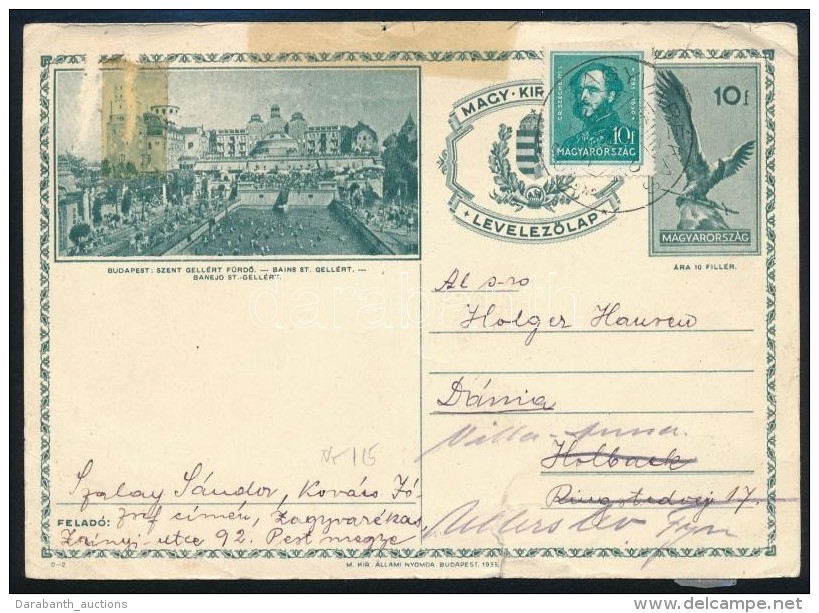 MAGY. KIR.
LEVELEZŐLAP
10f
MAGYARORSZÁG
10f
MAGYARORSZÁG
ÁRA 10 FILLÉR.
BUDAPEST: SZENT GELLÉRT FÜRDŐ. — BAINS ST. GELLÉRT. —
BANEJO ST.-GELLÉRT.
darabanth
Al s-ro
Holger Hansen
Dánia
Villa - Anna.
Holbaek
Ringstedvej 17.
No 115
Szalay Sándor, Kovács Jó-
FELADÓ: zsef címén, Zagyvarékas,
Zrinyi-utca 92. Pest megye
D-2
M. KIR. ÁLLAMI NYOMDA. BUDAPEST, 1935.
Darabanth_auctions
©delcampe.net